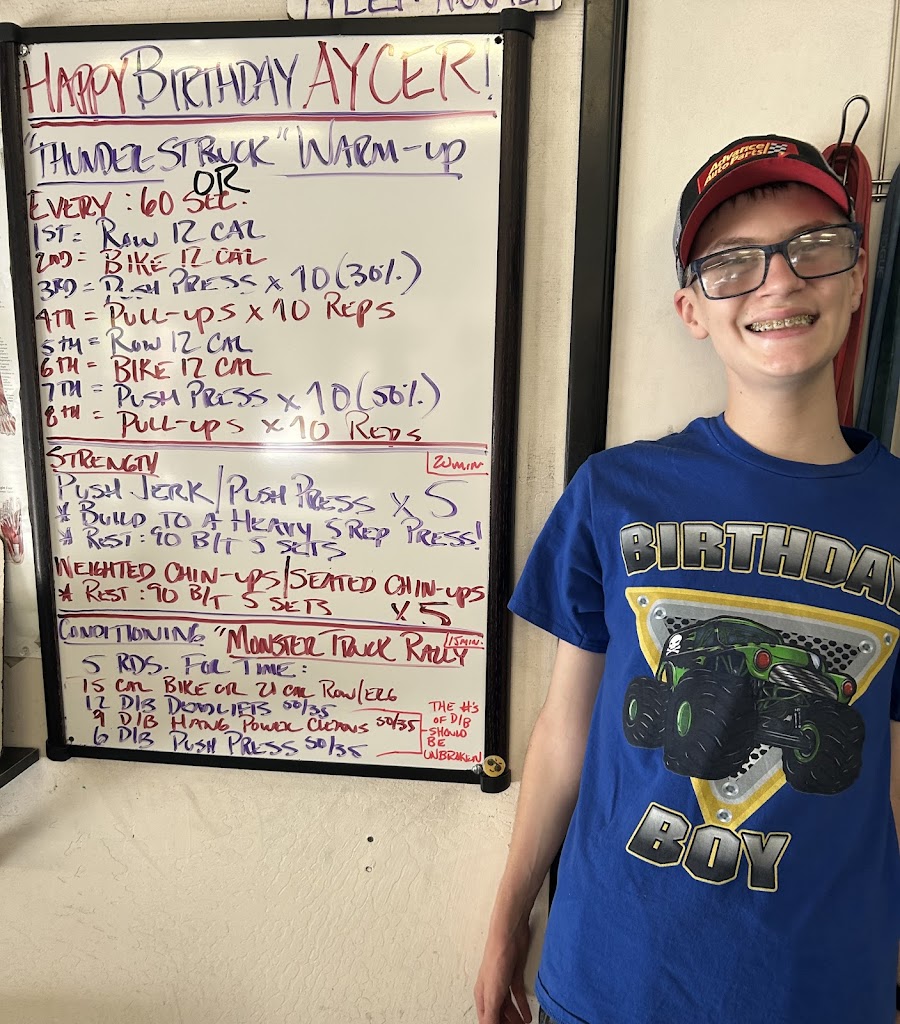 HAPPY BIRTHDAY AYCER!
"THUNDER-STRUCK" WARM-UP
OR
EVERY :60 SEC.
1ST = ROW 12 CAL
2ND = BIKE 12 CAL
3RD = PUSH PRESS x 10 (30%)
4TH = PULL-UPS x 10 REPS
5TH = ROW 12 CAL
6TH = BIKE 12 CAL
7TH = PUSH PRESS x 10 (50%)
8TH = PULL-UPS x 10 REPS
STRENGTH
20 MIN
PUSH JERK/PUSH PRESS x 5
* BUILD TO A HEAVY 5 REP PRESS!
* REST :90 B/T 5 SETS
WEIGHTED CHIN-UPS/SEATED CHIN-UPS
* REST :90 B/T 5 SETS x 5
CONDITIONING "MONSTER TRUCK RALLY
15 MIN.
5 RDS. FOR TIME:
15 CAL BIKE OR 21 CAL ROW/ERG
12 D/B DEADLIFTS 50/35
9 D/B HANG POWER CLEANS 50/35
6 D/B PUSH PRESS 50/35
THE #'S
OF D/B
SHOULD
BE
UNBROKEN
Advance
Auto Parts
BIRTHDAY
BOY